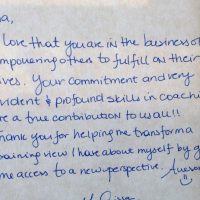 a,
love that you are in the business of
mpowering others to fulfill on their
ives. Your commitment and very
vident & profound skills in coachi
re a true contribution to us all!!
hank you for helping me transform a
aining view I have about myself by g
me access to a new perspective. Awesom